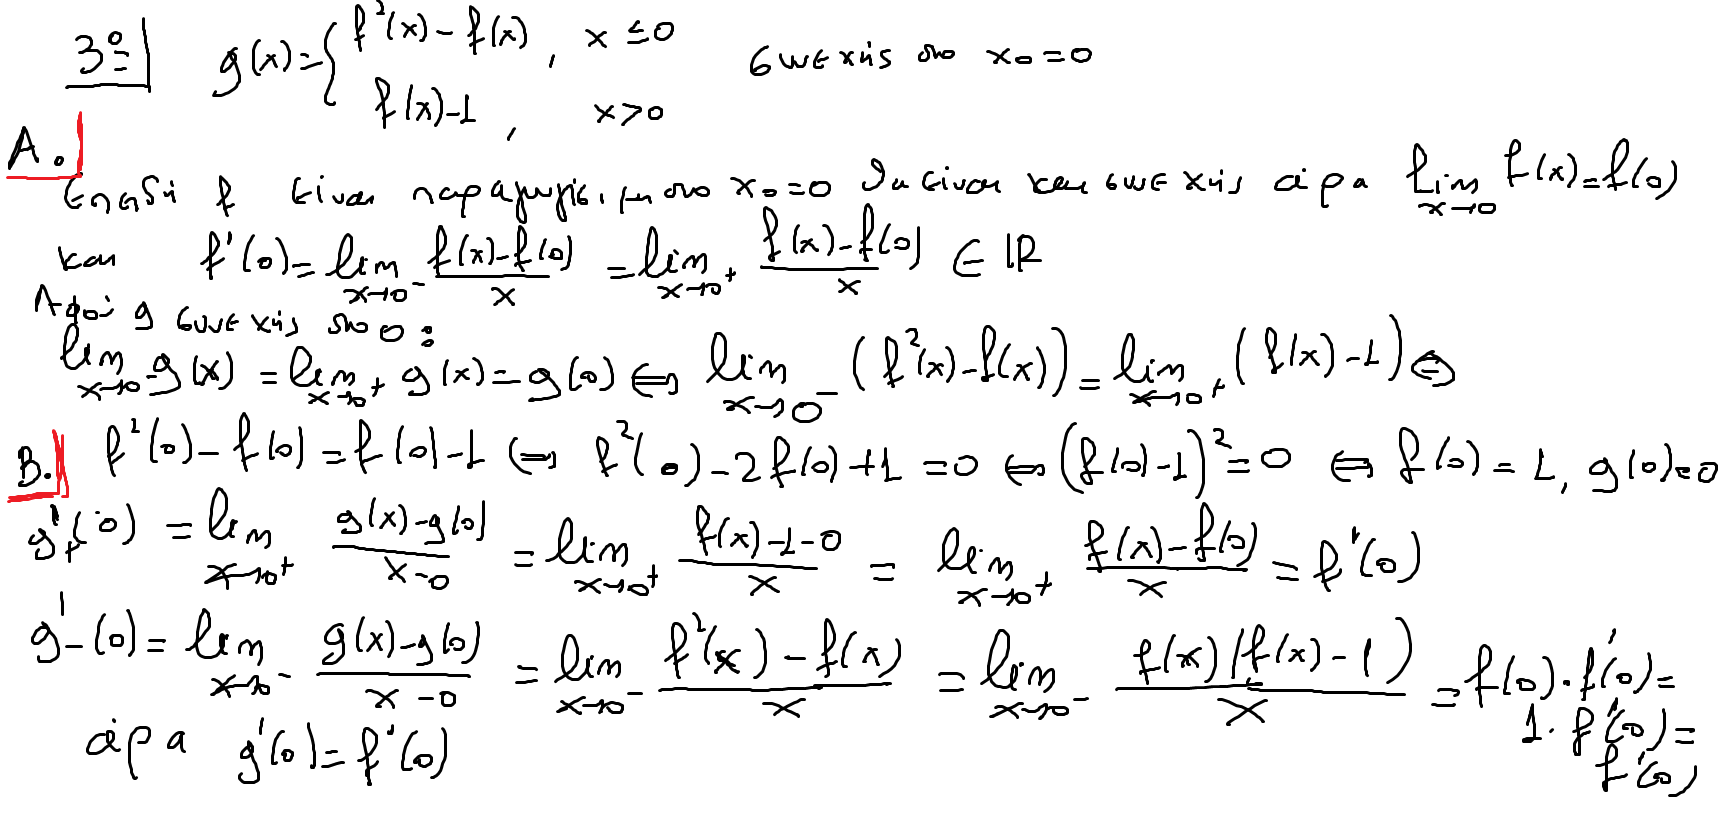 3º g(x)={ f²(x)-f(x), x≤0
f(x)-1, x>0 συνεχής στο x₀=0
A.
Επειδή f είναι παραγωγίσιμη στο x₀=0 θα είναι και συνεχής άρα lim x→0 f(x)=f(0)
και f'(0)=lim x→0⁻ (f(x)-f(0))/x = lim x→0⁺ (f(x)-f(0))/x ∈ ℝ
Αφού g συνεχής στο 0:
lim x→0⁻ g(x) = lim x→0⁺ g(x)=g(0) ⇔ lim x→0⁻ (f²(x)-f(x)) = lim x→0⁺ (f(x)-1) ⇔
f²(0)-f(0)=f(0)-1 ⇔ f²(0)-2f(0)+1=0 ⇔ (f(0)-1)²=0 ⇔ f(0)=1, g(0)=0
B.
g'₊(0) = lim x→0⁺ (g(x)-g(0))/(x-0) = lim x→0⁺ (f(x)-1-0)/x = lim x→0⁺ (f(x)-f(0))/x = f'(0)
g'₋(0)= lim x→0⁻ (g(x)-g(0))/(x-0) = lim x→0⁻ (f²(x)-f(x))/x = lim x→0⁻ (f(x)(f(x)-1))/x = f(0)·f'(0)=
1·f'(0)=
f'(0)
άρα g'(0)=f'(0)